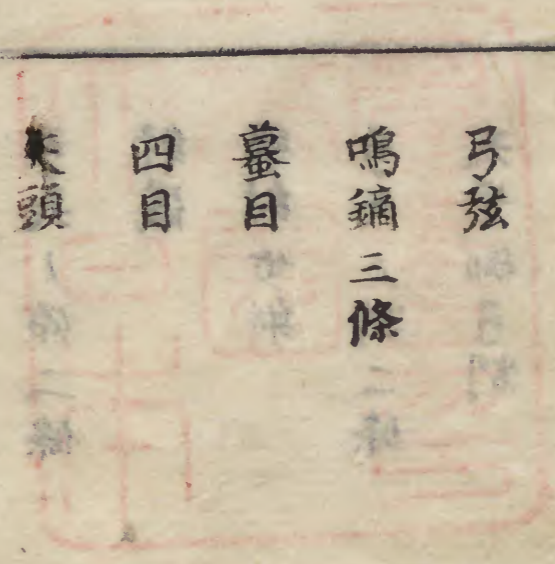 弓弦
鳴鏑三條
蟇目
四目
矢頭